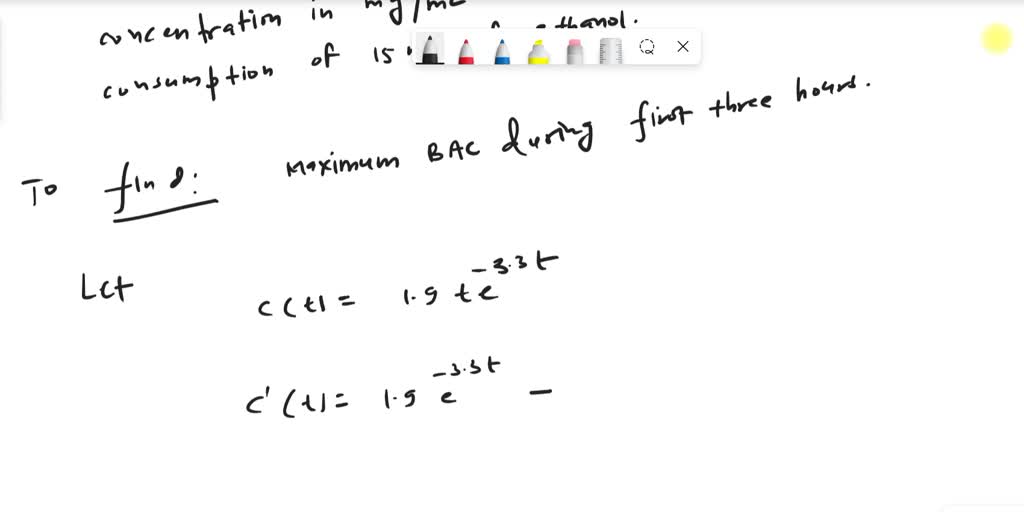 concentration in mg/mL
consumption of 15 ethanol.
To find: Maximum BAC during first three hours.
Let
C(t) = 1.9 t e^{-3.3t}
C'(t) = 1.9 e^{-3.3t} -